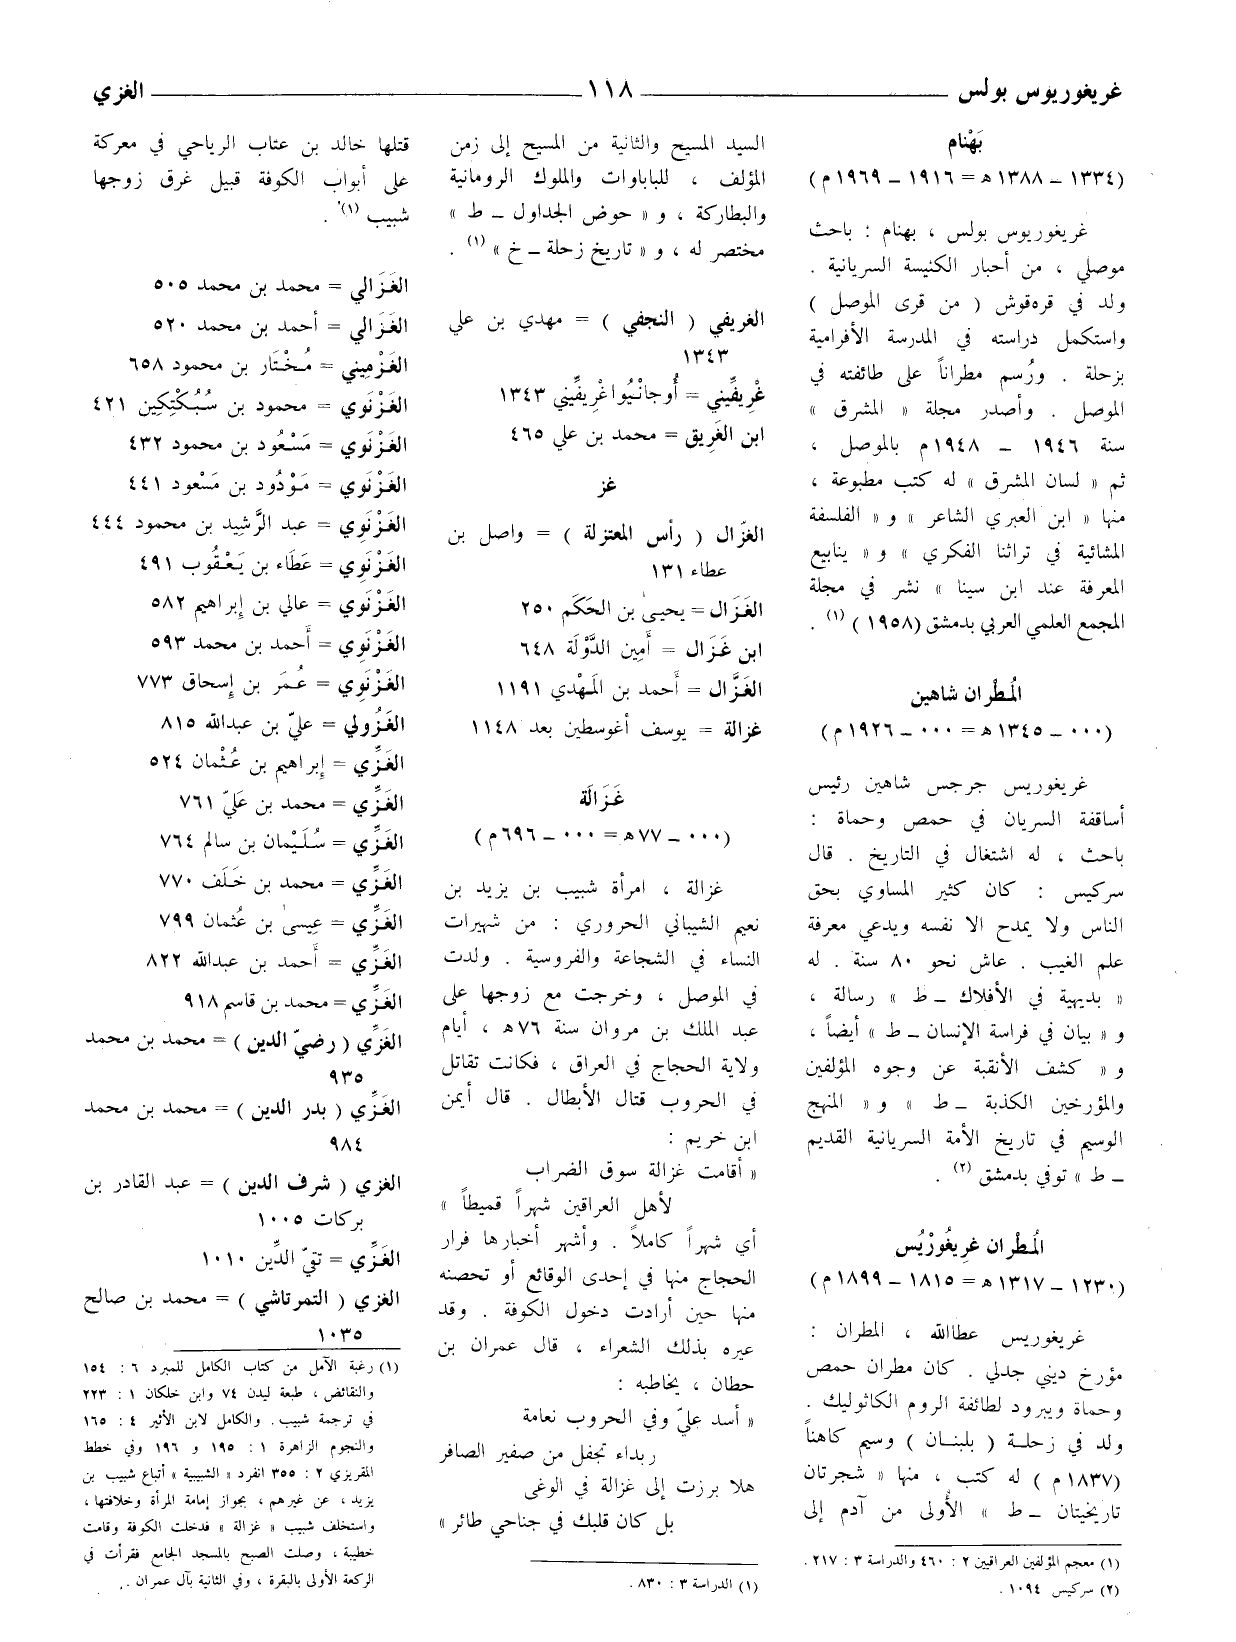 غريغوريوس بولس ــــــ ١١٨ ــــــ الغزي
بَهْنام
(١٣٣٤ ـ ١٣٨٨ ه‍ = ١٩١٦ ـ ١٩٦٩ م)
غريغوريوس بولس ، بهنام : باحث
موصلي ، من أحبار الكنيسة السريانية .
ولد في قره‌قوش ( من قرى الموصل )
واستكمل دراسته في المدرسة الأفرامية
بزحلة . ورُسم مطراناً على طائفته في
الموصل . وأصدر مجلة « المشرق »
سنة ١٩٤٦ ـ ١٩٤٨م بالموصل ،
ثم « لسان المشرق » له كتب مطبوعة ،
منها « ابن العبري الشاعر » و « الفلسفة
المشائية في تراثنا الفكري » و « ينابيع
المعرفة عند ابن سينا » نشر في مجلة
المجمع العلمي العربي بدمشق (١٩٥٨ ) (١) .
المُطْران شاهين
(٠٠٠ ـ ١٣٤٥ ه‍ = ٠٠٠ ـ ١٩٢٦ م)
غريغوريس جرجس شاهين رئيس
أساقفة السريان في حمص وحماة :
باحث ، له اشتغال في التاريخ . قال
سركيس : كان كثير المساوي بحق
الناس ولا يمدح الا نفسه ويدعي معرفة
علم الغيب . عاش نحو ٨٠ سنة . له
« بديهية في الأفلاك ـ ط » رسالة ،
و « بيان في فراسة الإنسان ـ ط » أيضاً ،
و « كشف الأنقبة عن وجوه المؤلفين
والمؤرخين الكذبة ـ ط » و « المنهج
الوسيم في تاريخ الأمة السريانية القديم
ـ ط » توفي بدمشق (٢) .
المُطْران غريغُورْيُس
(١٢٣٠ ـ ١٣١٧ ه‍ = ١٨١٥ ـ ١٨٩٩ م)
غريغوريس عطاالله ، المطران :
مؤرخ ديني جدلي . كان مطران حمص
وحماة ويبرود لطائفة الروم الكاثوليك .
ولد في زحلة ( بلبنان ) وسيم كاهناً
(١٨٣٧ م ) له كتب ، منها « شجرتان
تاريخيتان ـ ط » الأولى من آدم إلى
(١) معجم المؤلفين العراقيين ٢ : ٤٦٠ والدراسة ٣ : ٢١٧ .
(٢) سركيس ١٠٩٤ .
السيد المسيح والثانية من المسيح إلى زمن
المؤلف ، للباباوات والملوك الرومانية
والبطاركة ، و « حوض الجداول ـ ط »
مختصر له ، و « تاريخ زحلة ـ خ » (١) .
الغريفي ( النجفي ) = مهدي بن علي
١٣٤٣
غْرِيفِّيني = أُوجانْيُوا غْرِيفِّيني ١٣٤٣
ابن الغَرِيق = محمد بن علي ٤٦٥
غز
الغزّال ( رأس المعتزلة ) = واصل بن
عطاء ١٣١
الغَزَال = يحيىٰ بن الحَكَم ٢٥٠
ابن غَزَال = أَمِين الدَّوْلَة ٦٤٨
الغَزَّال = أَحمد بن المَهْدي ١١٩١
غزالة = يوسف أغوسطين بعد ١١٤٨
غَزَالَة
(٠٠٠ ـ ٧٧ ه‍ = ٠٠٠ ـ ٦٩٦ م)
غزالة ، امرأة شبيب بن يزيد بن
نعيم الشيباني الحروري : من شهيرات
النساء في الشجاعة والفروسية . ولدت
في الموصل ، وخرجت مع زوجها على
عبد الملك بن مروان سنة ٧٦ ه‍ ، أيام
ولاية الحجاج في العراق ، فكانت تقاتل
في الحروب قتال الأبطال . قال أيمن
ابن خريم :
« أقامت غزالة سوق الضراب
لأهل العراقين شهراً قميطاً »
أي شهراً كاملاً . وأشهر أخبارها فرار
الحجاج منها في إحدى الوقائع أو تحصنه
منها حين أرادت دخول الكوفة . وقد
عيره بذلك الشعراء ، قال عمران بن
حطان ، يخاطبه :
« أسد عليّ وفي الحروب نعامة
ربداء تجفل من صفير الصافر
هلا برزت إلى غزالة في الوغى
بل كان قلبك في جناحي طائر »
(١) الدراسة ٣ : ٨٣٠ .
قتلها خالد بن عتاب الرياحي في معركة
على أبواب الكوفة قبيل غرق زوجها
شبيب (١) .
الغَزَالي = محمد بن محمد ٥٠٥
الغَزَالي = أحمد بن محمد ٥٢٠
الغَزْمِيني = مُخْتَار بن محمود ٦٥٨
الغَزْنَوي = محمود بن سُبُكْتِكِين ٤٢١
الغَزْنَوي = مَسْعُود بن محمود ٤٣٢
الغَزْنَوي = مَوْدُود بن مَسْعود ٤٤١
الغَزْنَوِي = عبد الرَّشِيد بن محمود ٤٤٤
الغَزْنَوي = عَطَاء بن يَعْقُوب ٤٩١
الغَزْنَوي = عالي بن إبراهيم ٥٨٢
الغَزْنَوي = أَحمد بن محمد ٥٩٣
الغَزْنَوِي = عُمَر بن إسحاق ٧٧٣
الغَزُولي = عليّ بن عبدالله ٨١٥
الغَزِّي = إبراهيم بن عُثْمان ٥٢٤
الغَزِّي = محمد بن عَليّ ٧٦١
الغَزِّي = سُلَيْمان بن سالم ٧٦٤
الغَزِّي = محمد بن خَلَف ٧٧٠
الغَزِّي = عيسىٰ بن عُثمان ٧٩٩
الغَزِّي = أَحمد بن عبدالله ٨٢٢
الغَزِّي = محمد بن قاسم ٩١٨
الغَزِّي ( رضيّ الدين ) = محمد بن محمد
٩٣٥
الغَزِّي ( بدر الدين ) = محمد بن محمد
٩٨٤
الغزي ( شرف الدين ) = عبد القادر بن
بركات ١٠٠٥
الغَزِّي = تقيّ الدِّين ١٠١٠
الغزي ( التمرتاشي ) = محمد بن صالح
١٠٣٥
(١) رغبة الآمل من كتاب الكامل للمبرد ٦ : ١٥٤
والنقائض ، طبعة ليدن ٧٤ وابن خلكان ١ : ٢٢٣
في ترجمة شبيب . والكامل لابن الأثير ٤ : ١٦٥
والنجوم الزاهرة ١ : ١٩٥ و ١٩٦ وفي خطط
المقريزي ٢ : ٣٥٥ انفرد « الشبيبية » أتباع شبيب بن
يزيد ، عن غيرهم ، بجواز إمامة المرأة وخلافتها ،
واستخلف شبيب « غزالة » فدخلت الكوفة وقامت
خطيبة ، وصلت الصبح بالمسجد الجامع فقرأت في
الركعة الأولى بالبقرة ، وفي الثانية بآل عمران .